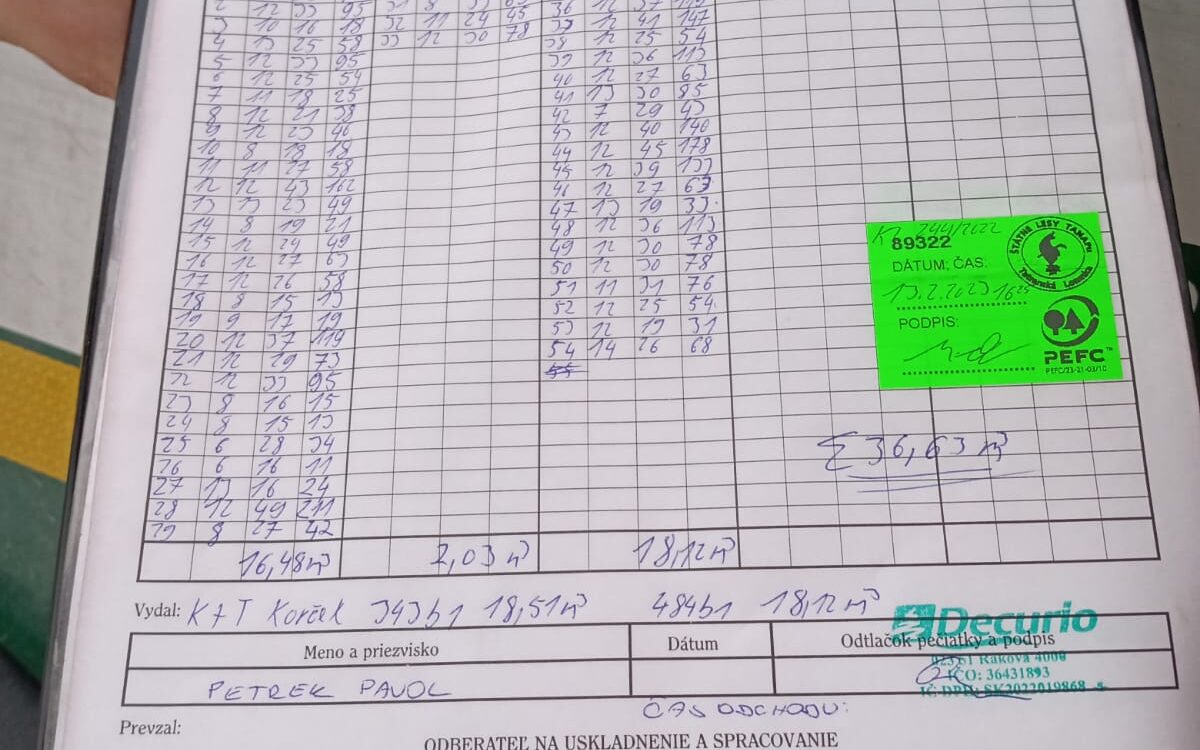 3 10 16 18 32 11 24 45 37 12 41 147
4 13 25 58 33 12 30 78 38 12 25 54
5 12 33 95 39 12 36 113
6 12 25 54 40 12 27 63
7 11 18 25 41 13 30 85
8 12 21 38 42 7 29 43
9 12 23 46 43 12 40 140
10 8 18 18 44 12 45 178
11 11 27 58 45 12 39 133
12 12 43 162 46 12 27 63
13 13 23 49 47 13 19 33
14 8 19 21 48 12 36 113
15 12 24 49 49 12 30 78
16 12 27 63 50 12 30 78
17 12 26 58 51 11 31 76
18 8 15 13 52 12 25 54
19 9 17 19 53 12 19 31
20 12 37 119 54 14 26 68
21 12 29 73 55
22 12 33 95
23 8 16 15
24 8 15 13
25 6 28 34
26 6 16 11
27 13 16 24
28 12 49 211
29 8 27 42
16,48m³ 2,03 m³ 18,12m³
244/2022
89322
DÁTUM, ČAS:
13.2.2023 16
PODPIS:
ŠTÁTNE LESY TANAPU
Tatranská Lomnica
PEFC™
PEFC/23-21-03/10
Σ 36,63 m³
Vydal: KAT Korček 343b1 18,51m³ 484b1 18,12m³
Decurio
Meno a priezvisko Dátum Odtlačok pečiatky a podpis
023 51 Raková 4000
IČO: 36431893
IČ DPH: SK2022019868
PETREK PAVOL
ČAS ODCHODU:
Prevzal:
ODBERATEĽ NA USKLADNENIE A SPRACOVANIE